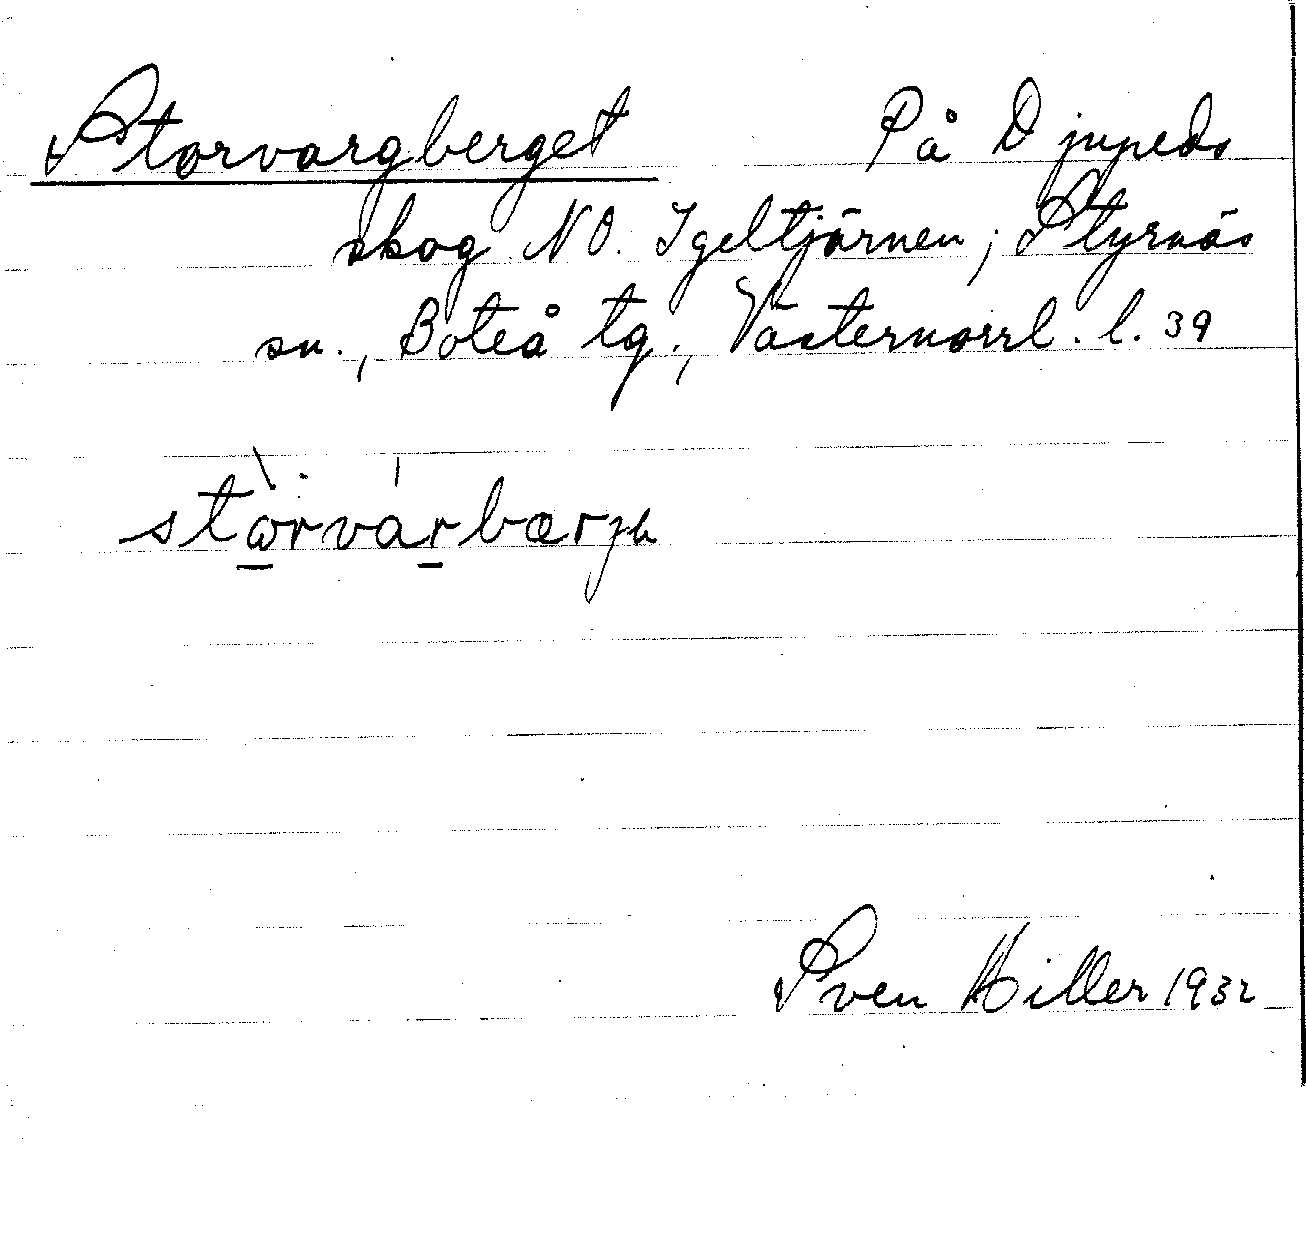 Storvargberget På Djupeds
skog NO. Igeltjärnen; Styrnäs
sn., Boteå tg., Västernorrl. l. 39
Sven Hiller 1932